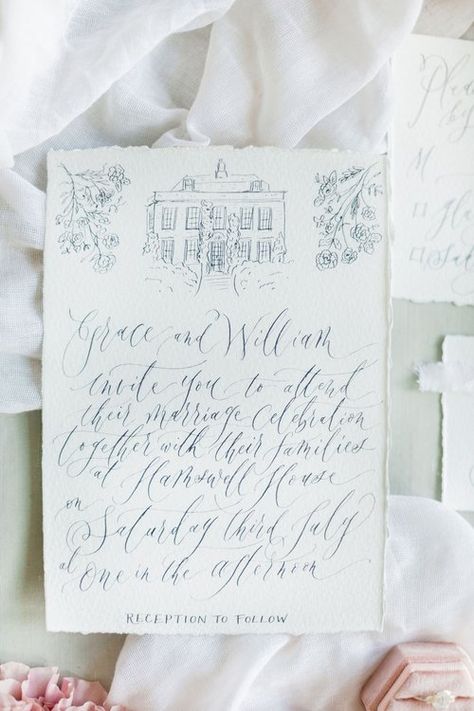 Grace and William
invite you to attend
their marriage celebration
together with their families
at Hamswell House
on Saturday third July
at One in the afternoon
RECEPTION TO FOLLOW
by
M